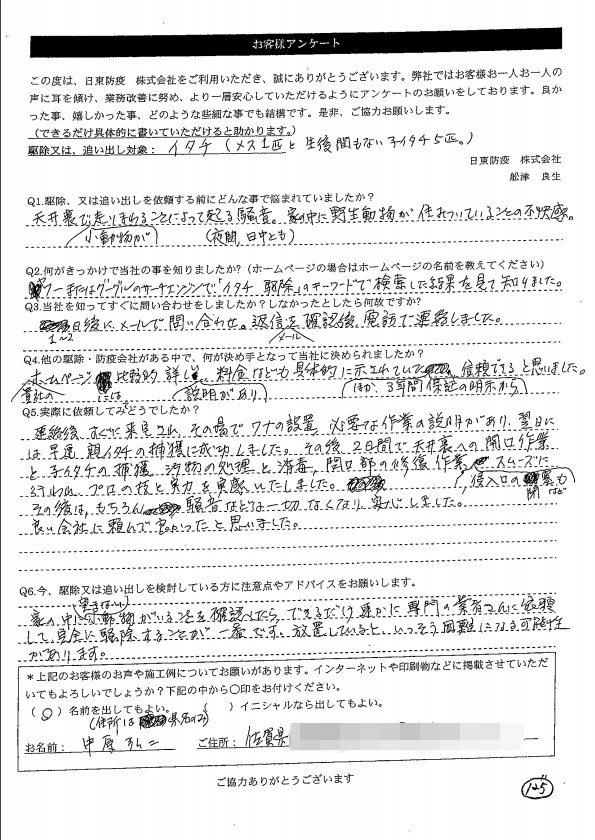 お客様アンケート
この度は、日東防疫 株式会社をご利用いただき、誠にありがとうございます。弊社ではお客様お一人お一人の
声に耳を傾け、業務改善に努め、より一層安心していただけるようにアンケートのお願いをしております。良か
った事、嬉しかった事、どのような些細な事でも結構です。是非、ご協力お願いします。
(できるだけ具体的に書いていただけると助かります。)
駆除又は、追い出し対象: イタチ (メス1匹と生後間もない子イタチ5匹。)
日東防疫 株式会社
舩津 良生
Q1.駆除、又は追い出しを依頼する前にどんな事で悩まれていましたか?
天井裏で走りまわることによって起る騒音。家の中に野生動物が住みついていることの不快感。
小動物が (夜間、日中とも)
Q2.何がきっかけで当社の事を知りましたか?(ホームページの場合はホームページの名前を教てください)
フーまたはグーグルのサーチエンジンで「イタチ 駆除」のキーワードで検索した結果を見て知りました。
Q3.当社を知ってすぐに問い合わせをしましたか?しなかったとしたら何故ですか?
1〜2日後にメールで問い合わせ。返信を確認後、電話で連絡しました。
メール
Q4.他の駆除・防疫会社がある中で、何が決め手となって当社に決められましたか?
ホームページ 比較的詳しく 料金なども具体的に示されていて 信頼できると思いました。
貴社の には、 説明があり ほか、3年間保証の明示から
Q5.実際に依頼してみどうでしたか?
連絡後、すぐに来宅され、その場でワナの設置、必要な作業の説明があり、翌日に
は早速親イタチの捕獲に成功しました。その後、2日間で天井裏への開口作業
と子イタチの捕獲、汚物の処理と消毒、開口部の修復作業 スムーズに
行われ、プロの技と実力を実感いたしました。 侵入口の 閉 など
その後は、もちろん 騒音などは一切なくなり、安心しました。
良い会社に頼んで良かったと思いました。
Q6.今、駆除又は追い出しを検討している方に注意点やアドバイスをお願いします。
家の中に小動物がいることを確認したら、できるだけ速かに専門の業者さんに依頼
して、完全に駆除することが一番です。放置していると、いっそう困難になる可能性
があります。
*上記のお客様のお声や施工例についてお願いがあります。インターネットや印刷物などに掲載させていただ
いてもよろしいでしょうか?下記の中から○印をお付けください。
(○) 名前を出してもよい。 ( ) イニシャルなら出してもよい。
(住所は 県名のみ)
お名前: 中原 ご住所: 佐賀県
ご協力ありがとうございます
125